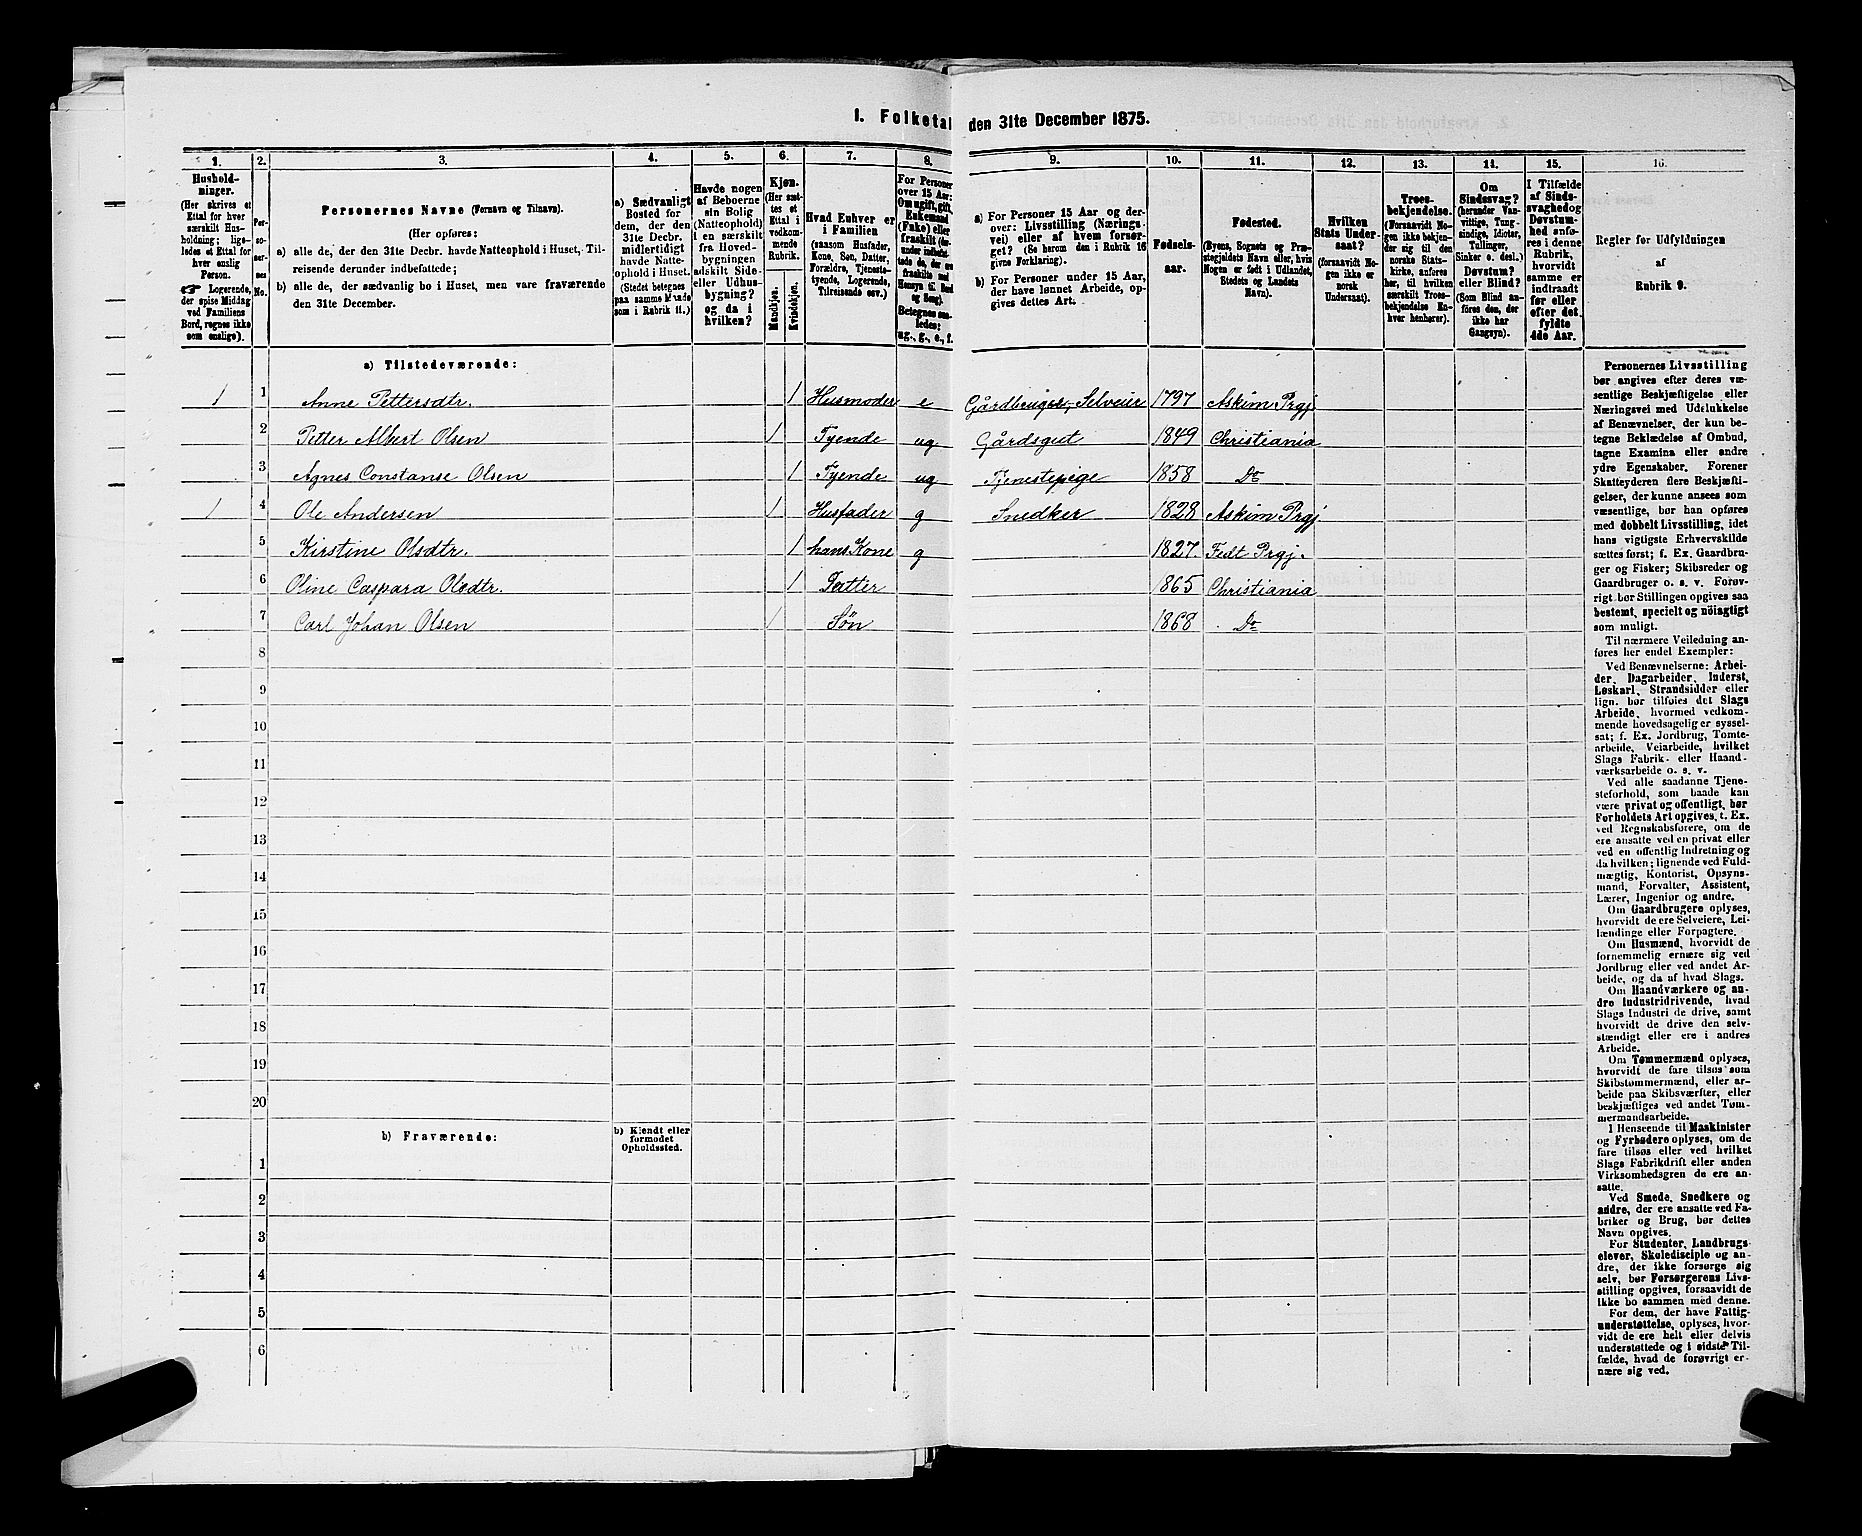 1. Folketal den 31te December 1875.
1. 2. 3. 4. 5. 6. 7. 8. 9. 10. 11. 12. 13. 14. 15. 16.
Hushold-
ninger.
(Her skrives et
Ettal for hver
særskilt Hus-
holdning; lige-
ledes et Ettal for
hver enslig
Person.
☞ Logerende,
der spise Middag
ved Familiens
Bord, regnes ikke
som enslige).
Per-
so-
ner-
nes
No.
Personernes Navne (Fornavn og Tilnavn).
(Her opføres:
a) alle de, der den 31te Decbr. havde Natteophold i Huset, Til-
reisende derunder indbefattede;
b) alle de, der sædvanlig bo i Huset, men vare fraværende
den 31te December.
a) Sædvanligt
Bosted for
dem, der den
31te Decbr.
midlertidigt
havde Natte-
ophold i Huset.
(Stedet betegnes
paa samme Maade
som i Rubrik 11.)
Havde nogen
af Beboerne
sin Bolig
(Natteophold)
i en særskilt
fra Hoved-
bygningen
adskilt Side-
eller Udhus-
bygning?
og da i
hvilken?
Kjøn.
(Her sæt-
tes et
Ettal i
vedkom-
mende
Rubrik.
Mandkjøn.
Kvindekjøn.
Hvad Enhver er
i Familien
(saasom Husfader,
Kone, Søn, Datter,
Forældre, Tjeneste-
tyende, Logerende,
Tilreisende osv.)
For Personer
over 15 Aar:
Om ugift, gift,
Enkemand
(Enke) eller
fraskilt (der-
under indbefat-
tede de, der ere
fraskilte med
Hensyn til Bord
og Seng).
Betegnes saa-
ledes:
ug., g., e., f.
a) For Personer 15 Aar og der-
over: Livsstilling (Nærings-
vei) eller af hvem forsør-
get? (Se herom den i Rubrik 16
givne Forklaring).
b) For Personer under 15 Aar,
der have lønnet Arbeide, op-
gives dettes Art.
Fødsels-
aar.
Fødested.
(Byens, Sognets og Præ-
stegjeldets Navn eller, hvis
Nogen er født i Udlandet,
Stedets og Landets
Navn).
Hvilken
Stats Under-
saat?
(forsaavidt No-
gen ikke er
norsk
Undersaat).
Troes-
bekjendelse.
(Forsaavidt No-
gen ikke bekjen-
der sig til den
norske Stats-
kirke, anføres
her, til hvilken
særskilt Troes-
bekjendelse En-
hver henhører).
Om
Sindssvag?
(herunder Van-
vittige, Tung-
sindige, Idioter,
Tullinger,
Sinker o. desl.)
Døvstum?
eller Blind?
(Som Blind an-
føres den, der
ikke har
Gangsyn).
I Tilfælde
af Sinds-
svaghed og
Døvstum-
hed anfø-
res i denne
Rubrik,
hvorvidt
samme er
indtraadt
før eller
efter det
fyldte
4de Aar.
Regler for Udfyldningen
af
Rubrik 9.
a) Tilstedeværende:
1 1 Anne Pettersdtr. 1 Husmoder e Gårdbruger, Selveier 1797 Askim Prgj.
2 Petter Albert Olsen 1 Tyende ug Gårdsgut 1849 Christiania
3 Agnes Constanse Olsen 1 Tyende ug Tjenestepige 1858 Do
1 4 Ole Andersen 1 Husfader g Snedker 1828 Askim Prgj
5 Kirstine Olsdtr. 1 hans Kone g 1827. Fedt Prgj.
6 Oline Caspara Olsdtr. 1 Datter 1865 Christiania
7 Carl Johan Olsen 1 Søn 1868 Do
8
9
10
11
12
13
14
15
16
17
18
19
20
b) Fraværende:
b) Kjendt eller
formodet
Opholdssted.
1
2
3
4
5
6
Personernes Livsstilling
bør angives efter deres væ-
sentlige Beskjæftigelse eller
Næringsvei med Udelukkelse
af Benævnelser, der kun be-
tegne Beklædelse af Ombud,
tagne Examina eller andre
ydre Egenskaber. Forener
Skatteyderen flere Beskjæfti-
gelser, der kunne ansees som
væsentlige, bør han opføres
med dobbelt Livsstilling, idet
hans vigtigste Erhvervskilde
sættes først; f. Ex. Gaardbru-
ger og Fisker; Skibsreder og
Gaardbruger o. s. v. Forøv-
rigt bør Stillingen opgives saa
bestemt, specielt og nöiagtigt
som muligt.
Til nærmere Veiledning an-
føres her endel Exempler:
Ved Benævnelserne: Arbei-
der, Dagarbeider, Inderst,
Løskarl, Strandsidder eller
lign. bør tilføies det Slags
Arbeide, hvormed vedkom-
mende hovedsagelig er syssel-
sat; f. Ex. Jordbrug, Tomte-
arbeide, Veiarbeide, hvilket
Slags Fabrik- eller Haand-
værksarbeide o. s. v.
Ved alle saadanne Tjene-
steforhold, som baade kan
være privat og offentligt, bør
Forholdets Art opgives, t. Ex.
ved Regnskabsførere, om de
ere ansatte ved en privat eller
ved en offentlig Indretning og
da hvilken; lignende ved Fuld-
mægtig, Kontorist, Opsyns-
mand, Forvalter, Assistent,
Lærer, Ingeniør og andre.
Om Gaardbrugere oplyses,
hvorvidt de ere Selveiere, Lei-
lændinge eller Forpagtere.
Om Husmænd, hvorvidt de
fornemmelig ernære sig ved
Jordbrug eller ved andet Ar-
beide, og da af hvad Slags.
Om Haandværkere og an-
dre Industridrivende, hvad
Slags Industri de drive, samt
hvorvidt de drive den selv-
stændigt eller ere i andres
Arbeide.
Om Tømmermænd oplyses,
hvorvidt de fare tilsøs som
Skibstømmermænd, eller ar-
beide paa Skibsværfter, eller
beskjæftiges ved andet Tøm-
mermandsarbeide.
I Henseende til Maskinister
og Fyrbødere oplyses, om de
fare tilsøs eller ved hvilket
Slags Fabrikdrift eller anden
Virksomhedsgren de ere an-
satte.
Ved Smede, Snedkere og
andre, der ere ansatte ved Fa-
briker og Brug, bør dettes
Navn opgives.
For Studenter, Landbrugs-
elever, Skoledisciple og an-
dre, der ikke forsørge sig
selv, bør Forsørgerens Livs-
stilling opgives, forsaavidt de
ikke bo sammen med denne.
For dem, der have Fattig-
understøttelse, oplyses, hvor-
vidt de ere helt eller delvis
understøttede og i sidste Til-
fælde, hvad de forøvrigt er-
nære sig ved.